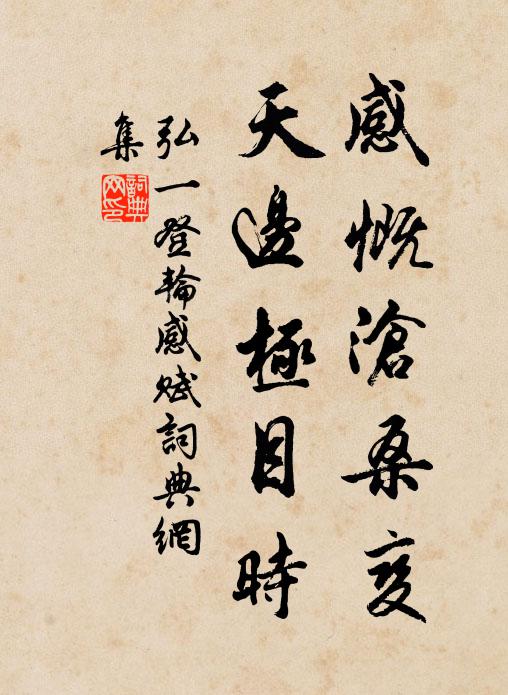 感慨滄桑変
天邊極目時
弘一登輪感賦詞典網
集
詞典
网印